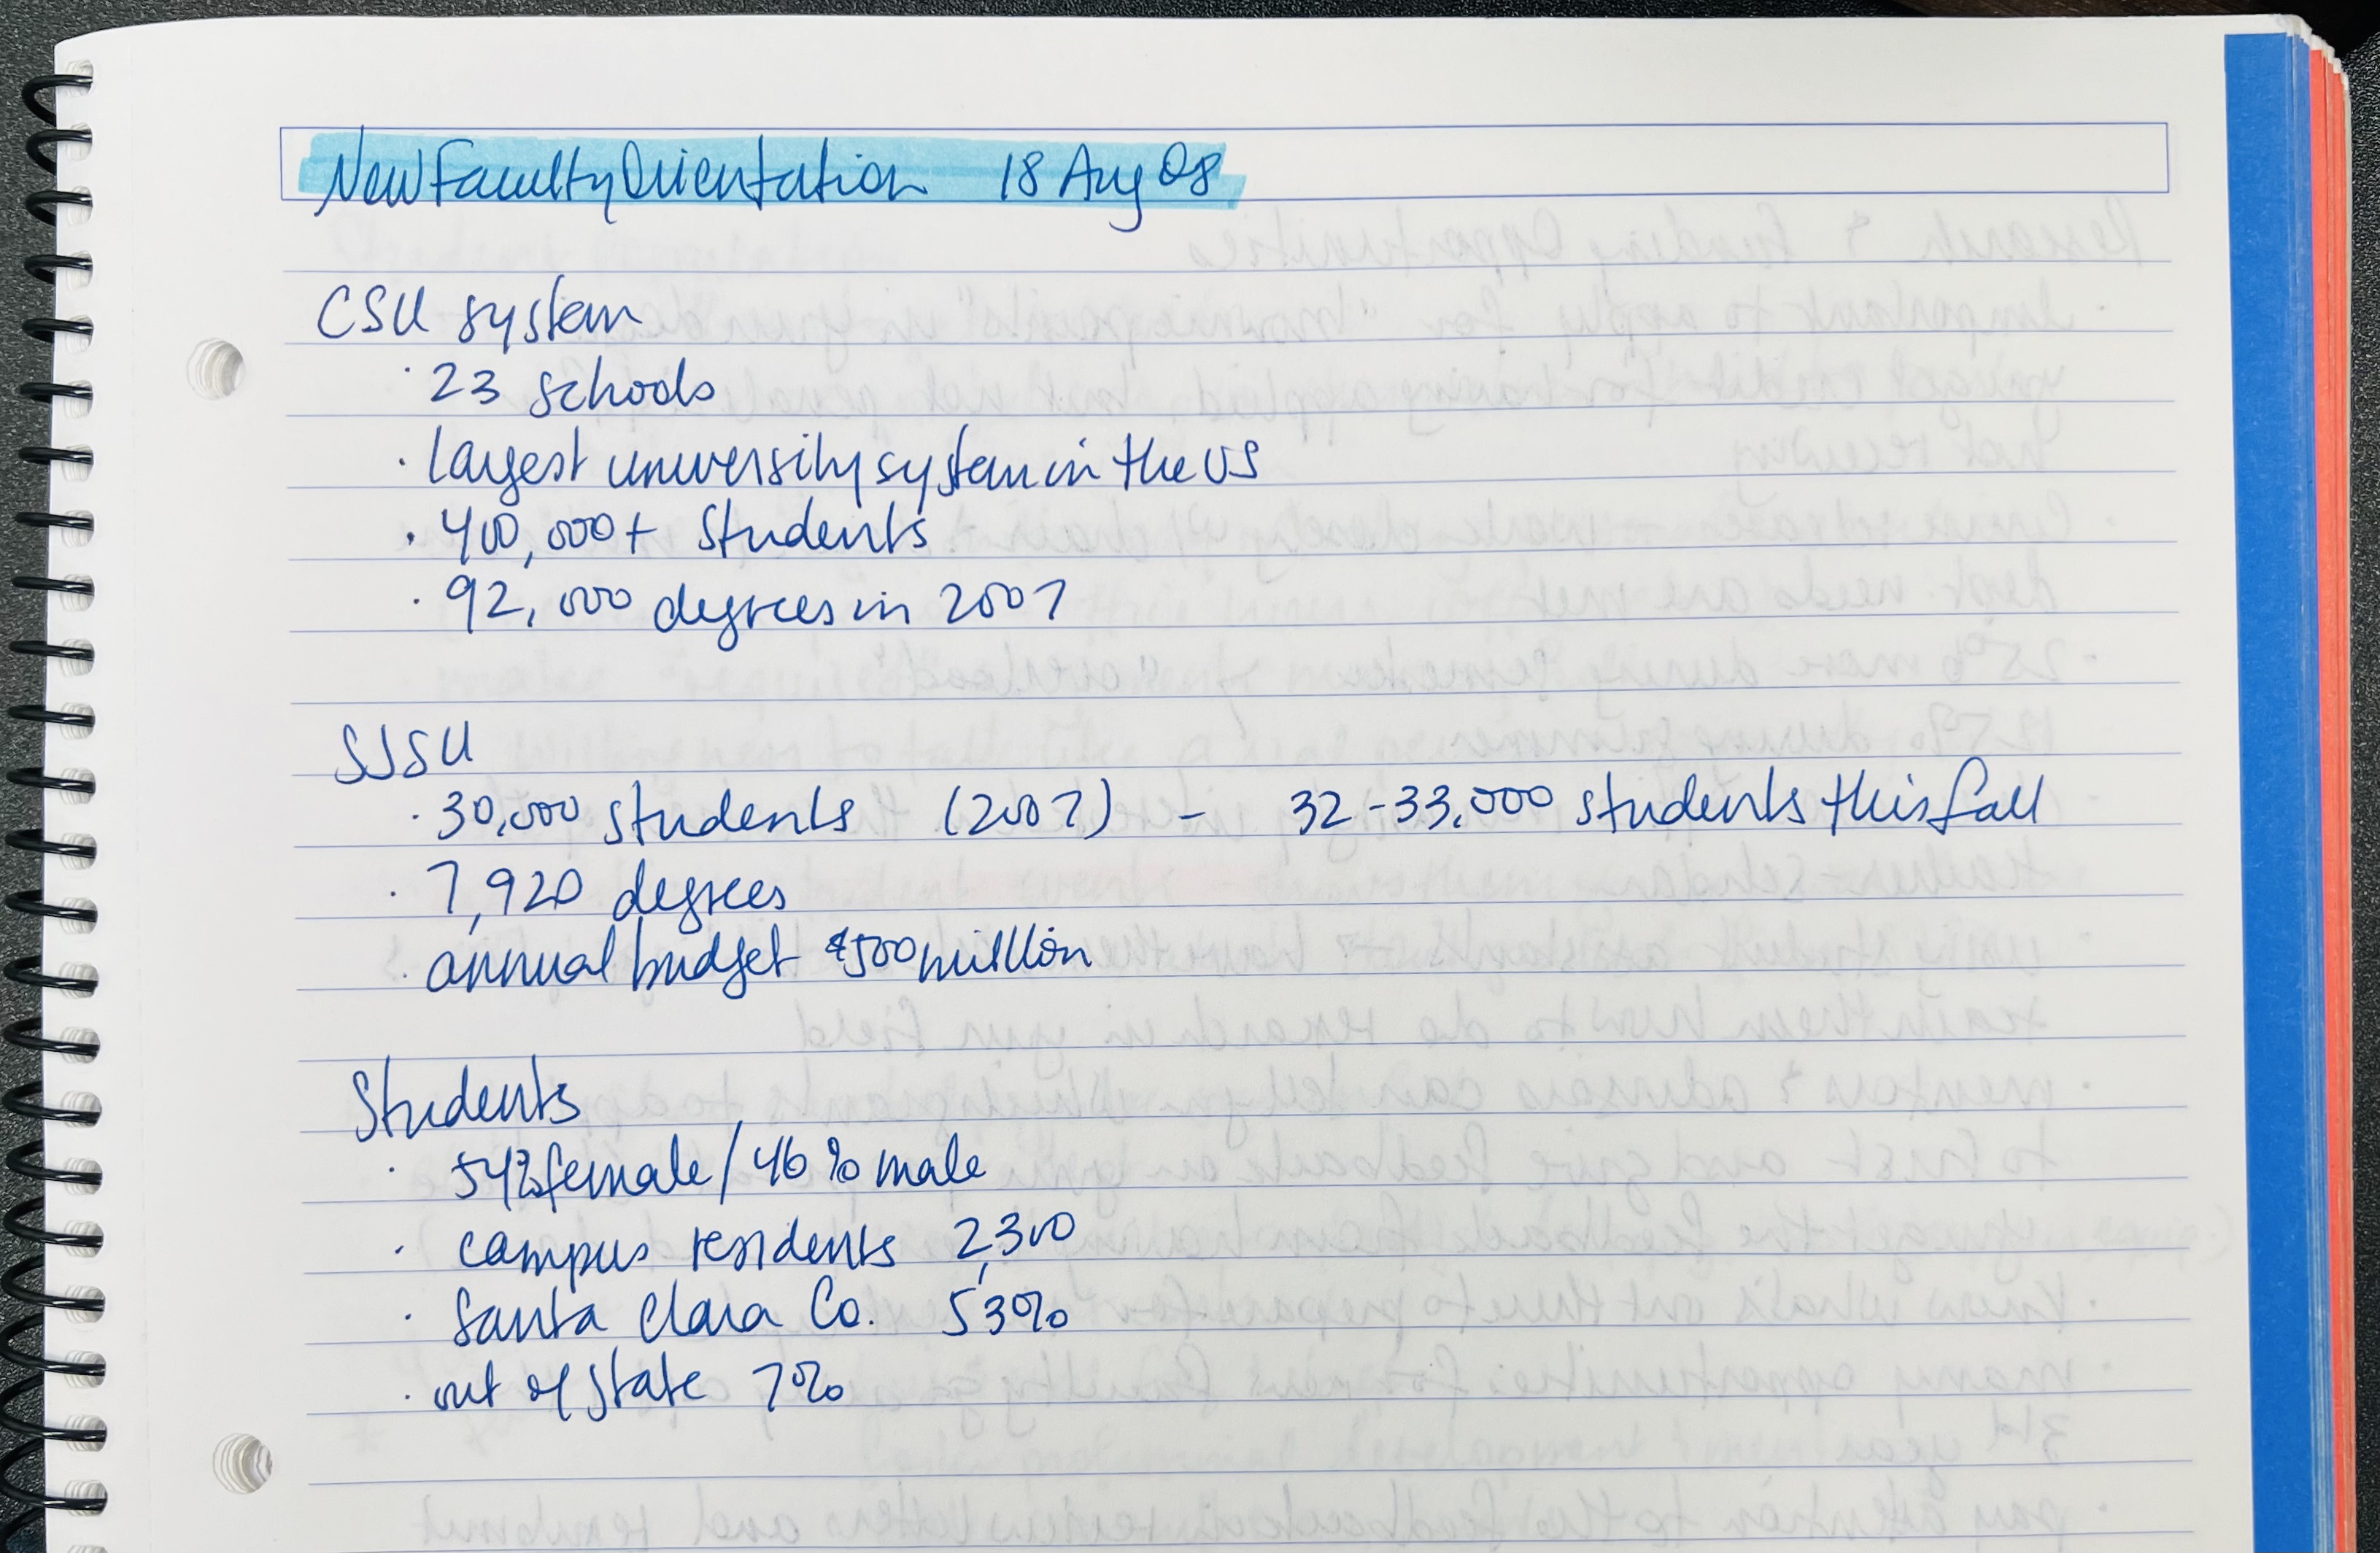 New Faculty Orientation 18 Aug 08
CSU system
· 23 schools
· largest university system in the US
· 400,000+ students
· 92,000 degrees in 2007
SJSU
· 30,000 students (2007) - 32-33,000 students this fall
· 7,920 degrees
· annual budget $500 million
Students
· 54% female / 46% male
· campus residents 2,300
· Santa Clara Co. 53%
· out of state 7%